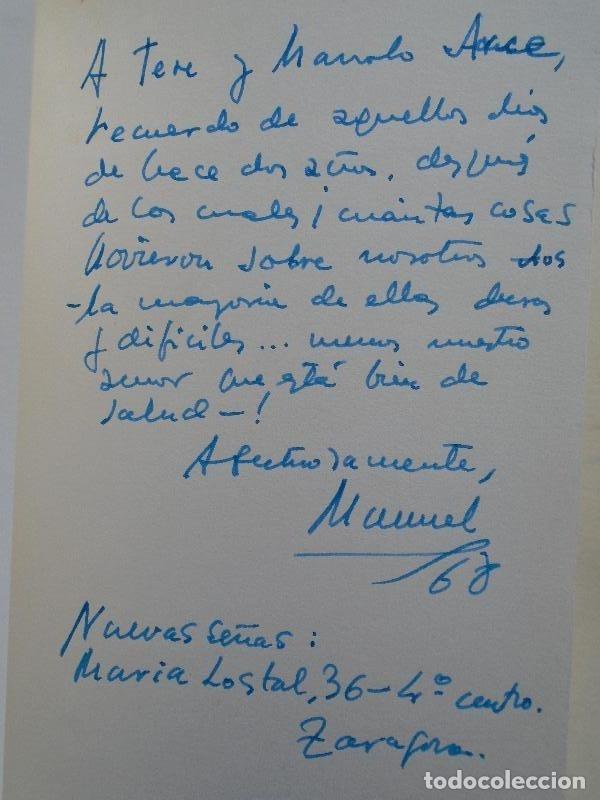 A Tere y Manolo Arce,
recuerdo de aquellos días
de hace dos años, después
de los cuales ¡cuántas cosas
llovieron sobre nosotros dos
-la mayoría de ellas duras
y difíciles... menos nuestro
amor que está bien de
salud-!
Afectuosamente,
Manuel
67
Nuevas señas:
Maria Lostal, 36-4º centro.
Zaragoza.
todocoleccion